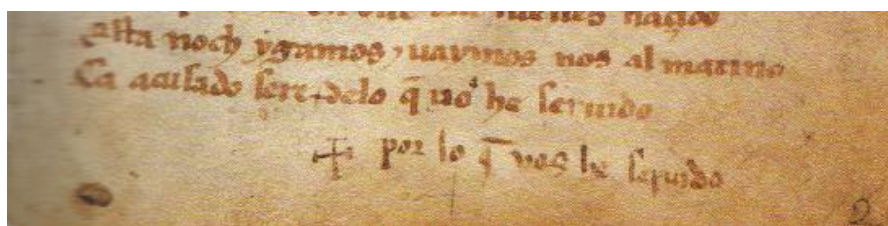 naçido
Esta noch ygamos ⁊ uaymos nos al matino
Ca acusado sere delo q̄ uos he seruido
✝ por lo q̄ vos he seruido
2